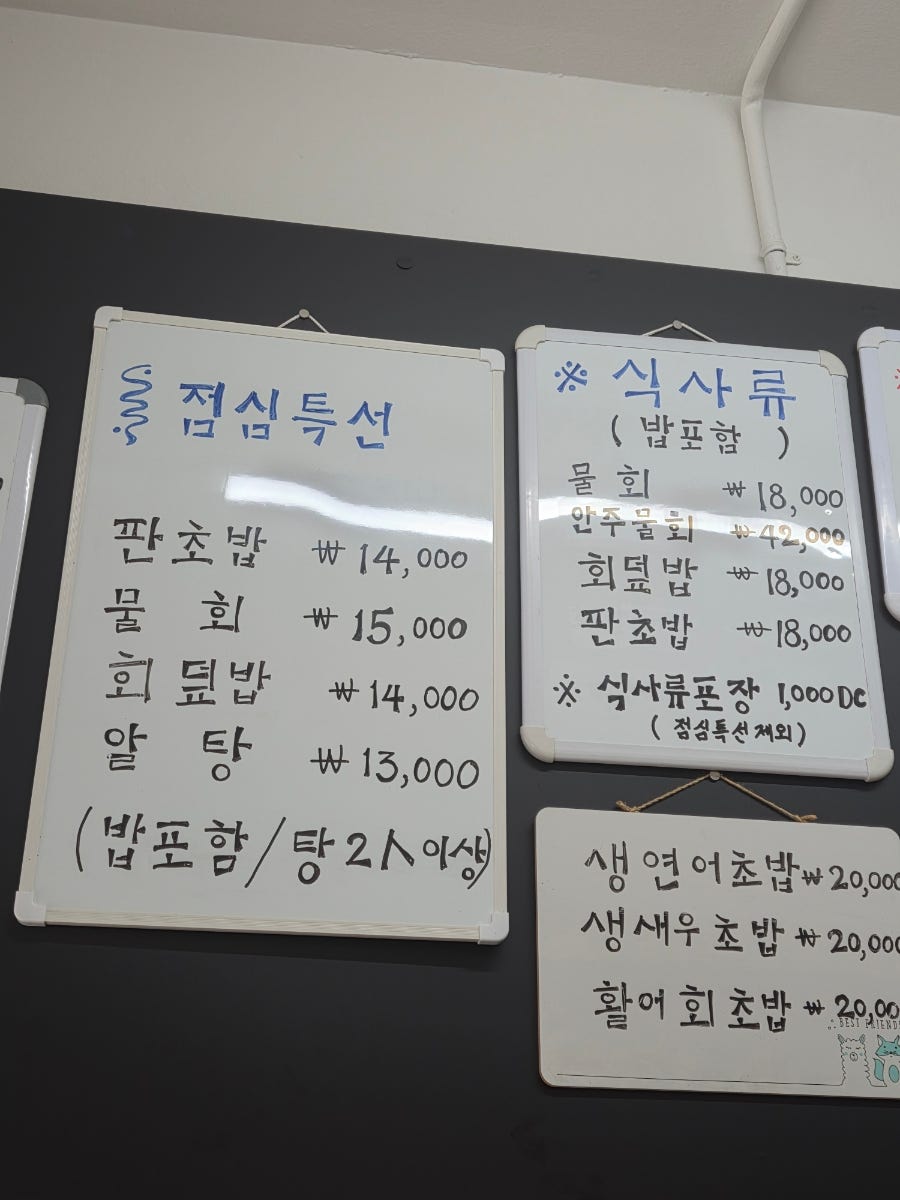 점심특선
판초밥 ₩ 14,000
물 회 ₩ 15,000
회 덮밥 ₩ 14,000
알 탕 ₩ 13,000
(밥포함/탕2人이상)
※ 식사류
(밥포함)
물 회 ₩ 18,000
안주물회 ₩ 42,000
회덮밥 ₩ 18,000
판초밥 ₩ 18,000
※ 식사류포장 1,000 DC
(점심특선제외)
생연어초밥 ₩ 20,000
생새우초밥 ₩ 20,000
활어회초밥 ₩ 20,00
BEST FRIEND